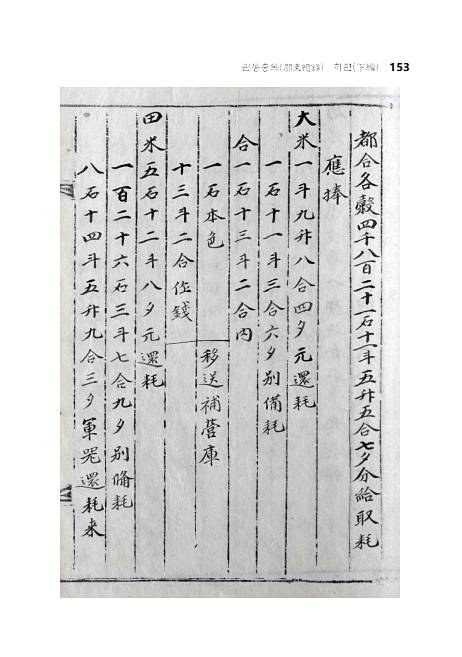 관동총록(關東總錄) 하편(下編) 153
都合各穀四千八百二十一石十一斗五升五合七夕分給取耗
應捧
大米一斗九升八合四夕元還耗
一石十一斗三合六夕別備耗
合一石十三斗二合內
一石本色
移送補營庫
十三斗二合作錢
田米五石十二斗八夕元還耗
一百二十六石三斗七合九夕別備耗
八石十四斗五升九合三夕軍咒還耗来